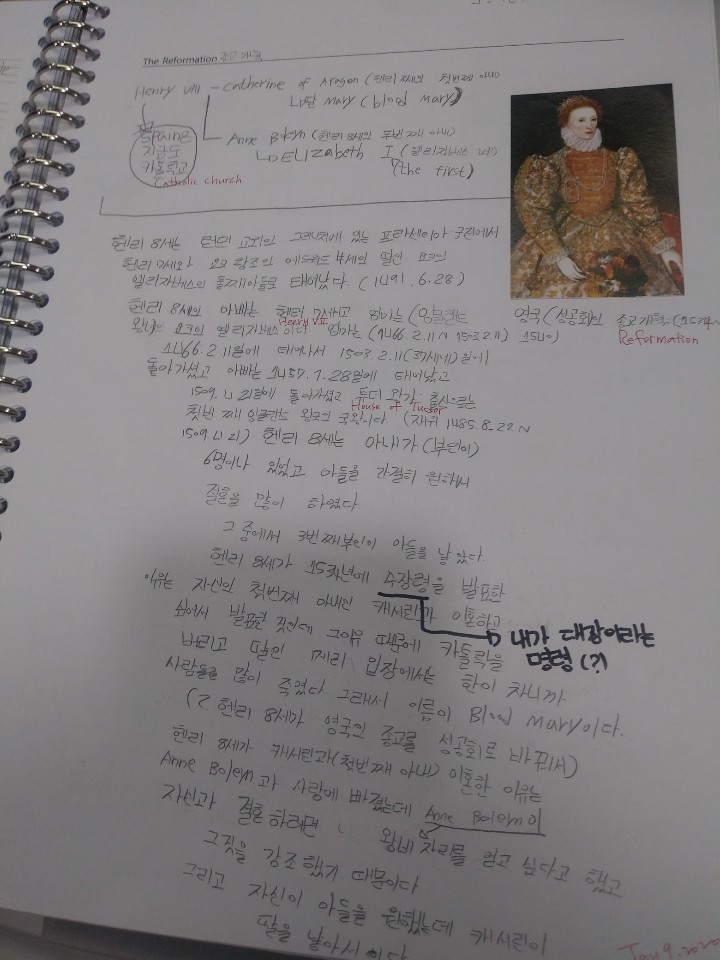 The Reformation 종교 개혁
Henry VIII - Catherine of Aragon (헨리 8세의 첫번째 아내)
↳딸 Mary (blood Mary)
Spaine
지금도
카톨릭교
Catholic church
Anne Boleyn (헨리 8세의 두번째 아내)
↳ELIZabeth I (엘리자베스 1세)
(the first)
헨리 8세는 런던 교외의 그리니치에 있는 프라센티아 궁전에서
헨리 7세와 요크 왕조의 에드워드 4세의 딸인 요크의
엘리자베스의 둘째아들로 태어났다. (1491.6.28)
헨리 8세의 아빠는 헨리 7세고 엄마는 (잉글랜드
Henry VII
왕비) 요크의 엘리자베스이다 엄마는 (1466.2.11~1503.2.11)
영국(성공회)의 종교개혁 (1534~
1540)
Reformation
1466.2.11일에 태어나서 1503.2.11(37세에)일에
돌아가셨고 아빠는 1457.1.28일에 태어났고
1509.4.21일에 돌아가셨고 튜더 왕가 출신으로는
House of Tudor
첫번째 잉글랜드 왕국의 국왕이다. (재위 1485.8.22~
1509.4.21) 헨리 8세는 아내가 (부인이)
6명이나 있었고 아들을 간절히 원해서
결혼을 많이 하였다
그 중에서 3번째부인이 아들을 낳았다.
헨리 8세가 1534년에 수장령을 발표한
이유는 자신의 첫번째 아내인 캐서린과 이혼하고
내가 대장이라는
명령(?)
싶어서 발표한 것인데 그이유 때문에 카톨릭을
버리고 딸인 메리 입장에서는 한이 차니까
사람들을 많이 죽였다 그래서 이름이 Blood Mary이다.
(헨리 8세가 영국의 종교를 성공회로 바꿔서)
헨리 8세가 캐서린과(첫번째 아내) 이혼한 이유는
Anne Boleyn과 사랑에 빠졌는데 Anne Boleyn이
자신과 결혼하려면 왕비 자리를 얻고 싶다고 했고
그것을 강조했기 때문이다
그리고 자신이 아들을 원했는데 캐서린이
딸을 낳아서 이다
Jan 9. 2020